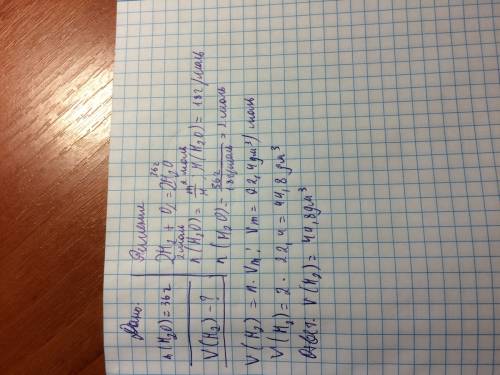 Дано:
n(H₂O)=36г
V(H₂)-?
Решение
36г
2H₂ + O₂ = 2H₂O
2моль 2моль
n(H₂O)= m/M M(H₂O)= 18г/моль
n(H₂O)= 36г/18г/моль = 2моль
V(H₂)= n·Vm; Vm=22,4дм³/моль
V(H₂)= 2·22,4=44,8дм³
Ответ. V(H₂)= 44,8дм³